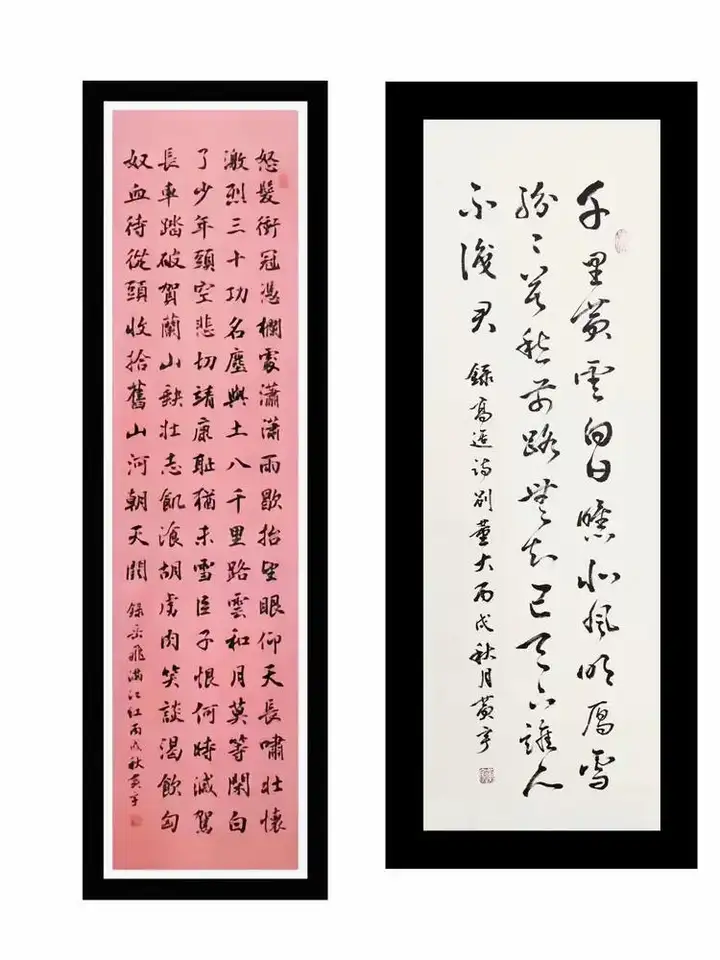 怒髮衝冠憑欄處瀟瀟雨歇抬望眼仰天長嘯壯懷
激烈三十功名塵與土八千里路雲和月莫等閑白
了少年頭空悲切靖康恥猶未雪臣子恨何時滅駕
長車踏破賀蘭山缺壯志飢湌胡虜肉笑談渴飲匈
奴血待從頭收拾舊山河朝天闕 錄岳飛滿江紅丙戌秋黃宇
千里黃雲白日曛北風吹雁雪
紛〻莫愁前路無知己天下誰人
不識君 錄高適詩別董大丙戌秋月黃宇